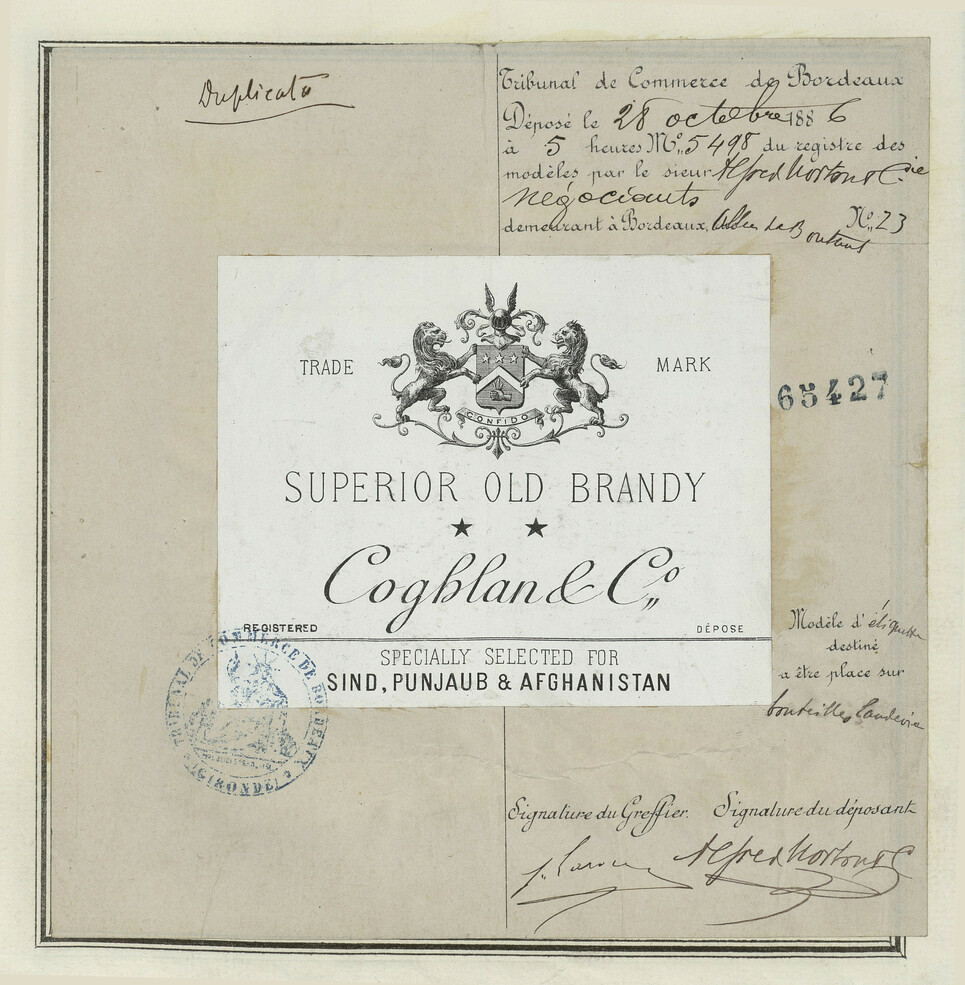 Duplicata
Tribunal de Commerce de Bordeaux
Déposé le 28 octobre 1886
à 5 heures No. 5498 du registre des
modèles par le sieur Alfred Morton & Cie
négociants
demeurant à Bordeaux, No. 23
TRADE MARK
CONFIDO
65427
SUPERIOR OLD BRANDY
Coghlan & Co.
REGISTERED DÉPOSE
SPECIALLY SELECTED FOR
SIND, PUNJAUB & AFGHANISTAN
Modèle d'étiquette
destiné
a être place sur
bouteilles
TRIBUNAL DE COMMERCE DE BORDEAUX
(GIRONDE)
Signature du Greffier. Signature du déposant
Alfred Morton & C